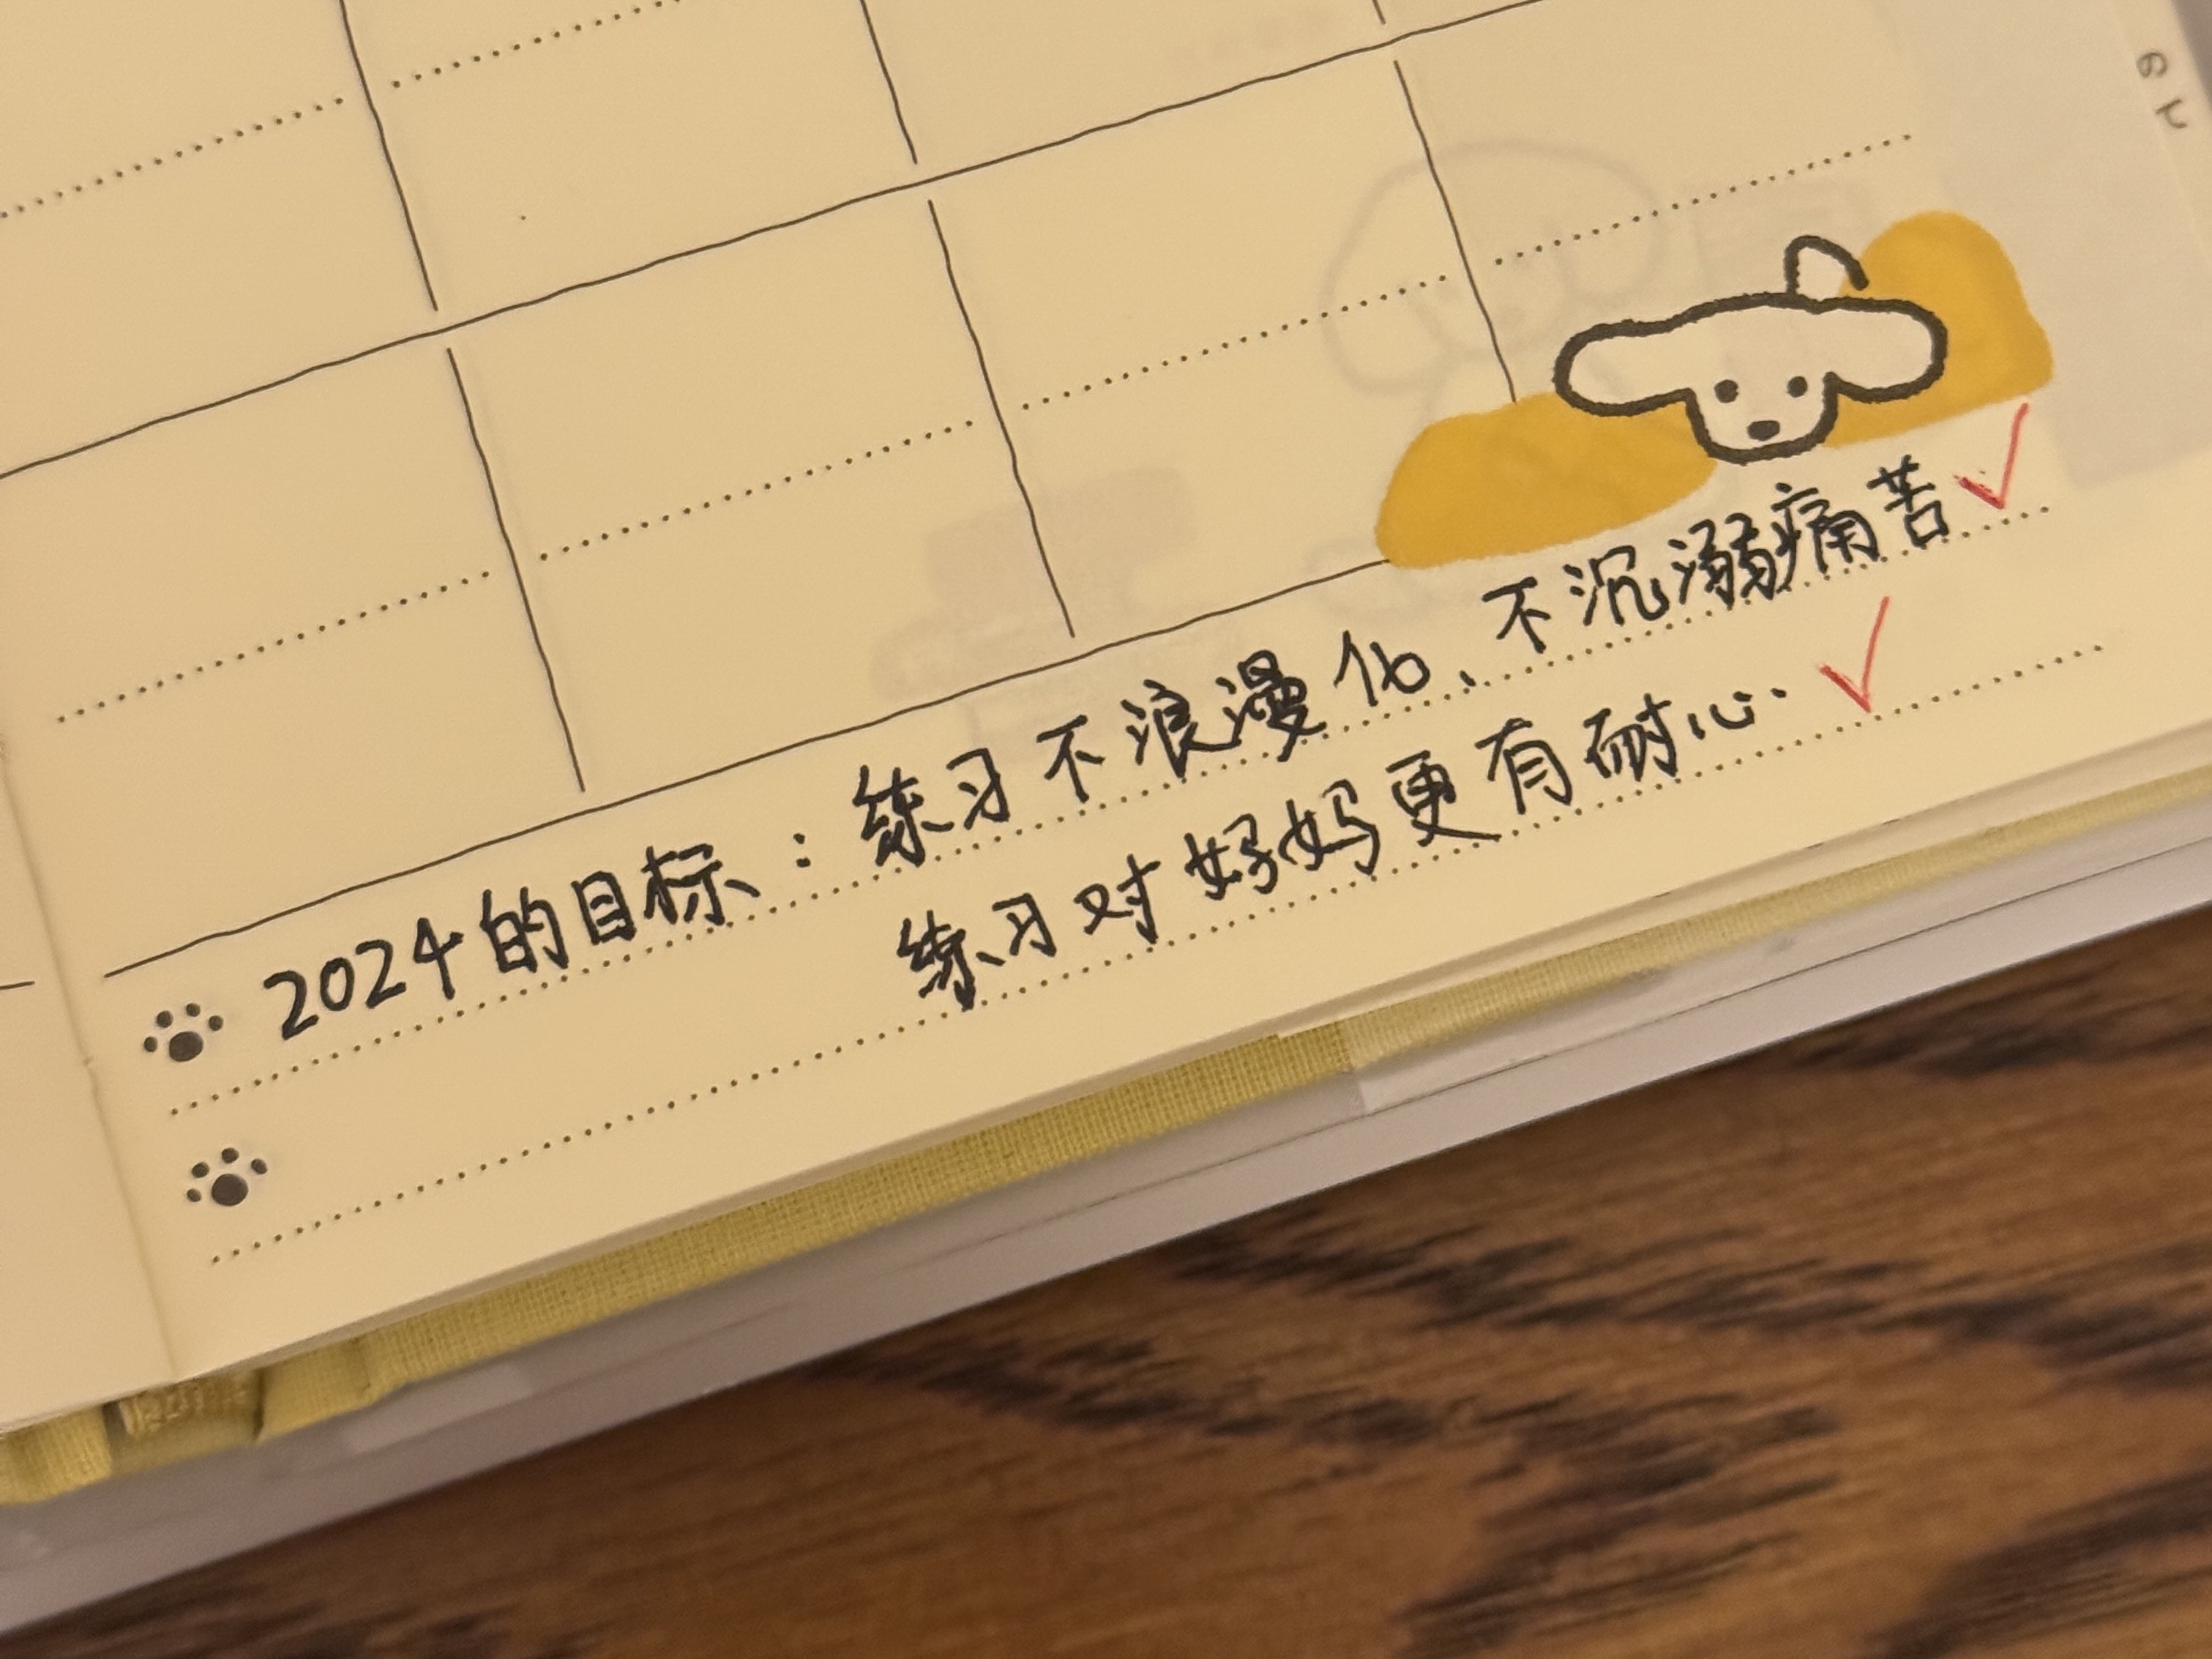 2024的目标：练习不浪漫化、不沉溺痛苦
练习对好妈更有耐心.